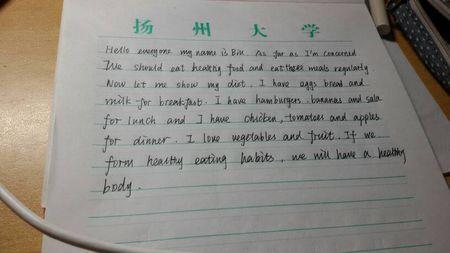 扬州大学
Hello everyone my name is Bin. As far as I'm concerned
We should eat healthy food and eat three meals regularly
Now let me show my diet. I have eggs bread and
milk for breakfast. I have hamburgers. bananas and sala
for lunch and I have chicken, tomatoes and apples
for dinner. I love vegetables and fruit. If we
form healthy eating habits, we will have a healthy
body.